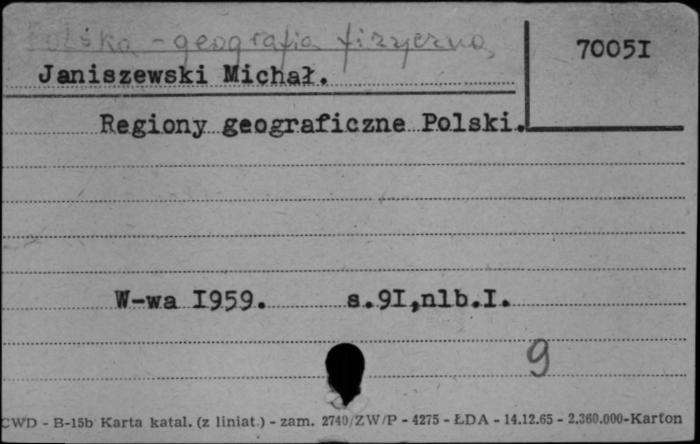 Polska - geografia fizyczna
70051
Janiszewski Michał.
Regiony geograficzne Polski.
W-wa 1959. s.91,nlb.1.
9
CWD - B-15b Karta katal. (z liniat.) - zam. 2740/ZW/P - 4275 - ŁDA - 14.12.65 - 2.360.000-Karton